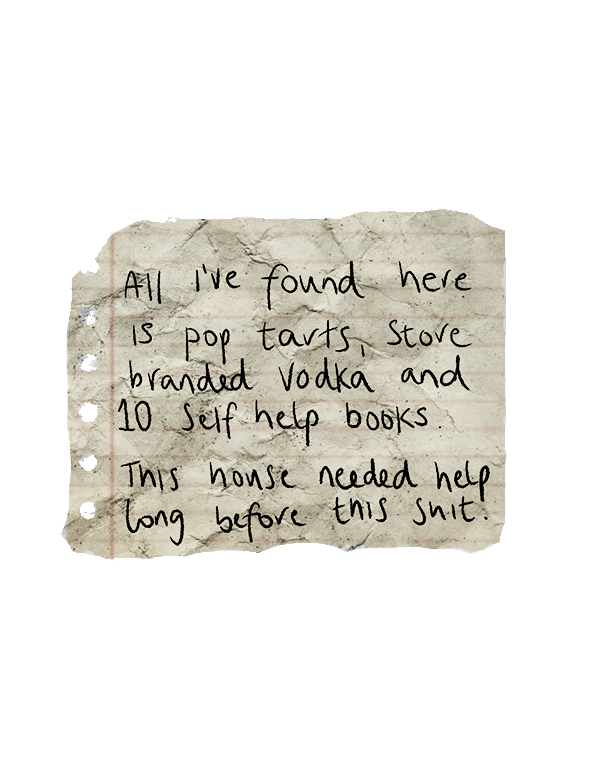 All i've found here
is pop tarts, Store
branded vodka and
10 Self help books.
This house needed help
long before this shit.